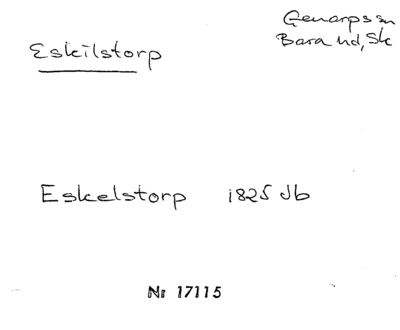 Genarps sn
Bara hd, Sk
Eskilstorp
Eskelstorp 1825 Jb
Nr 17115